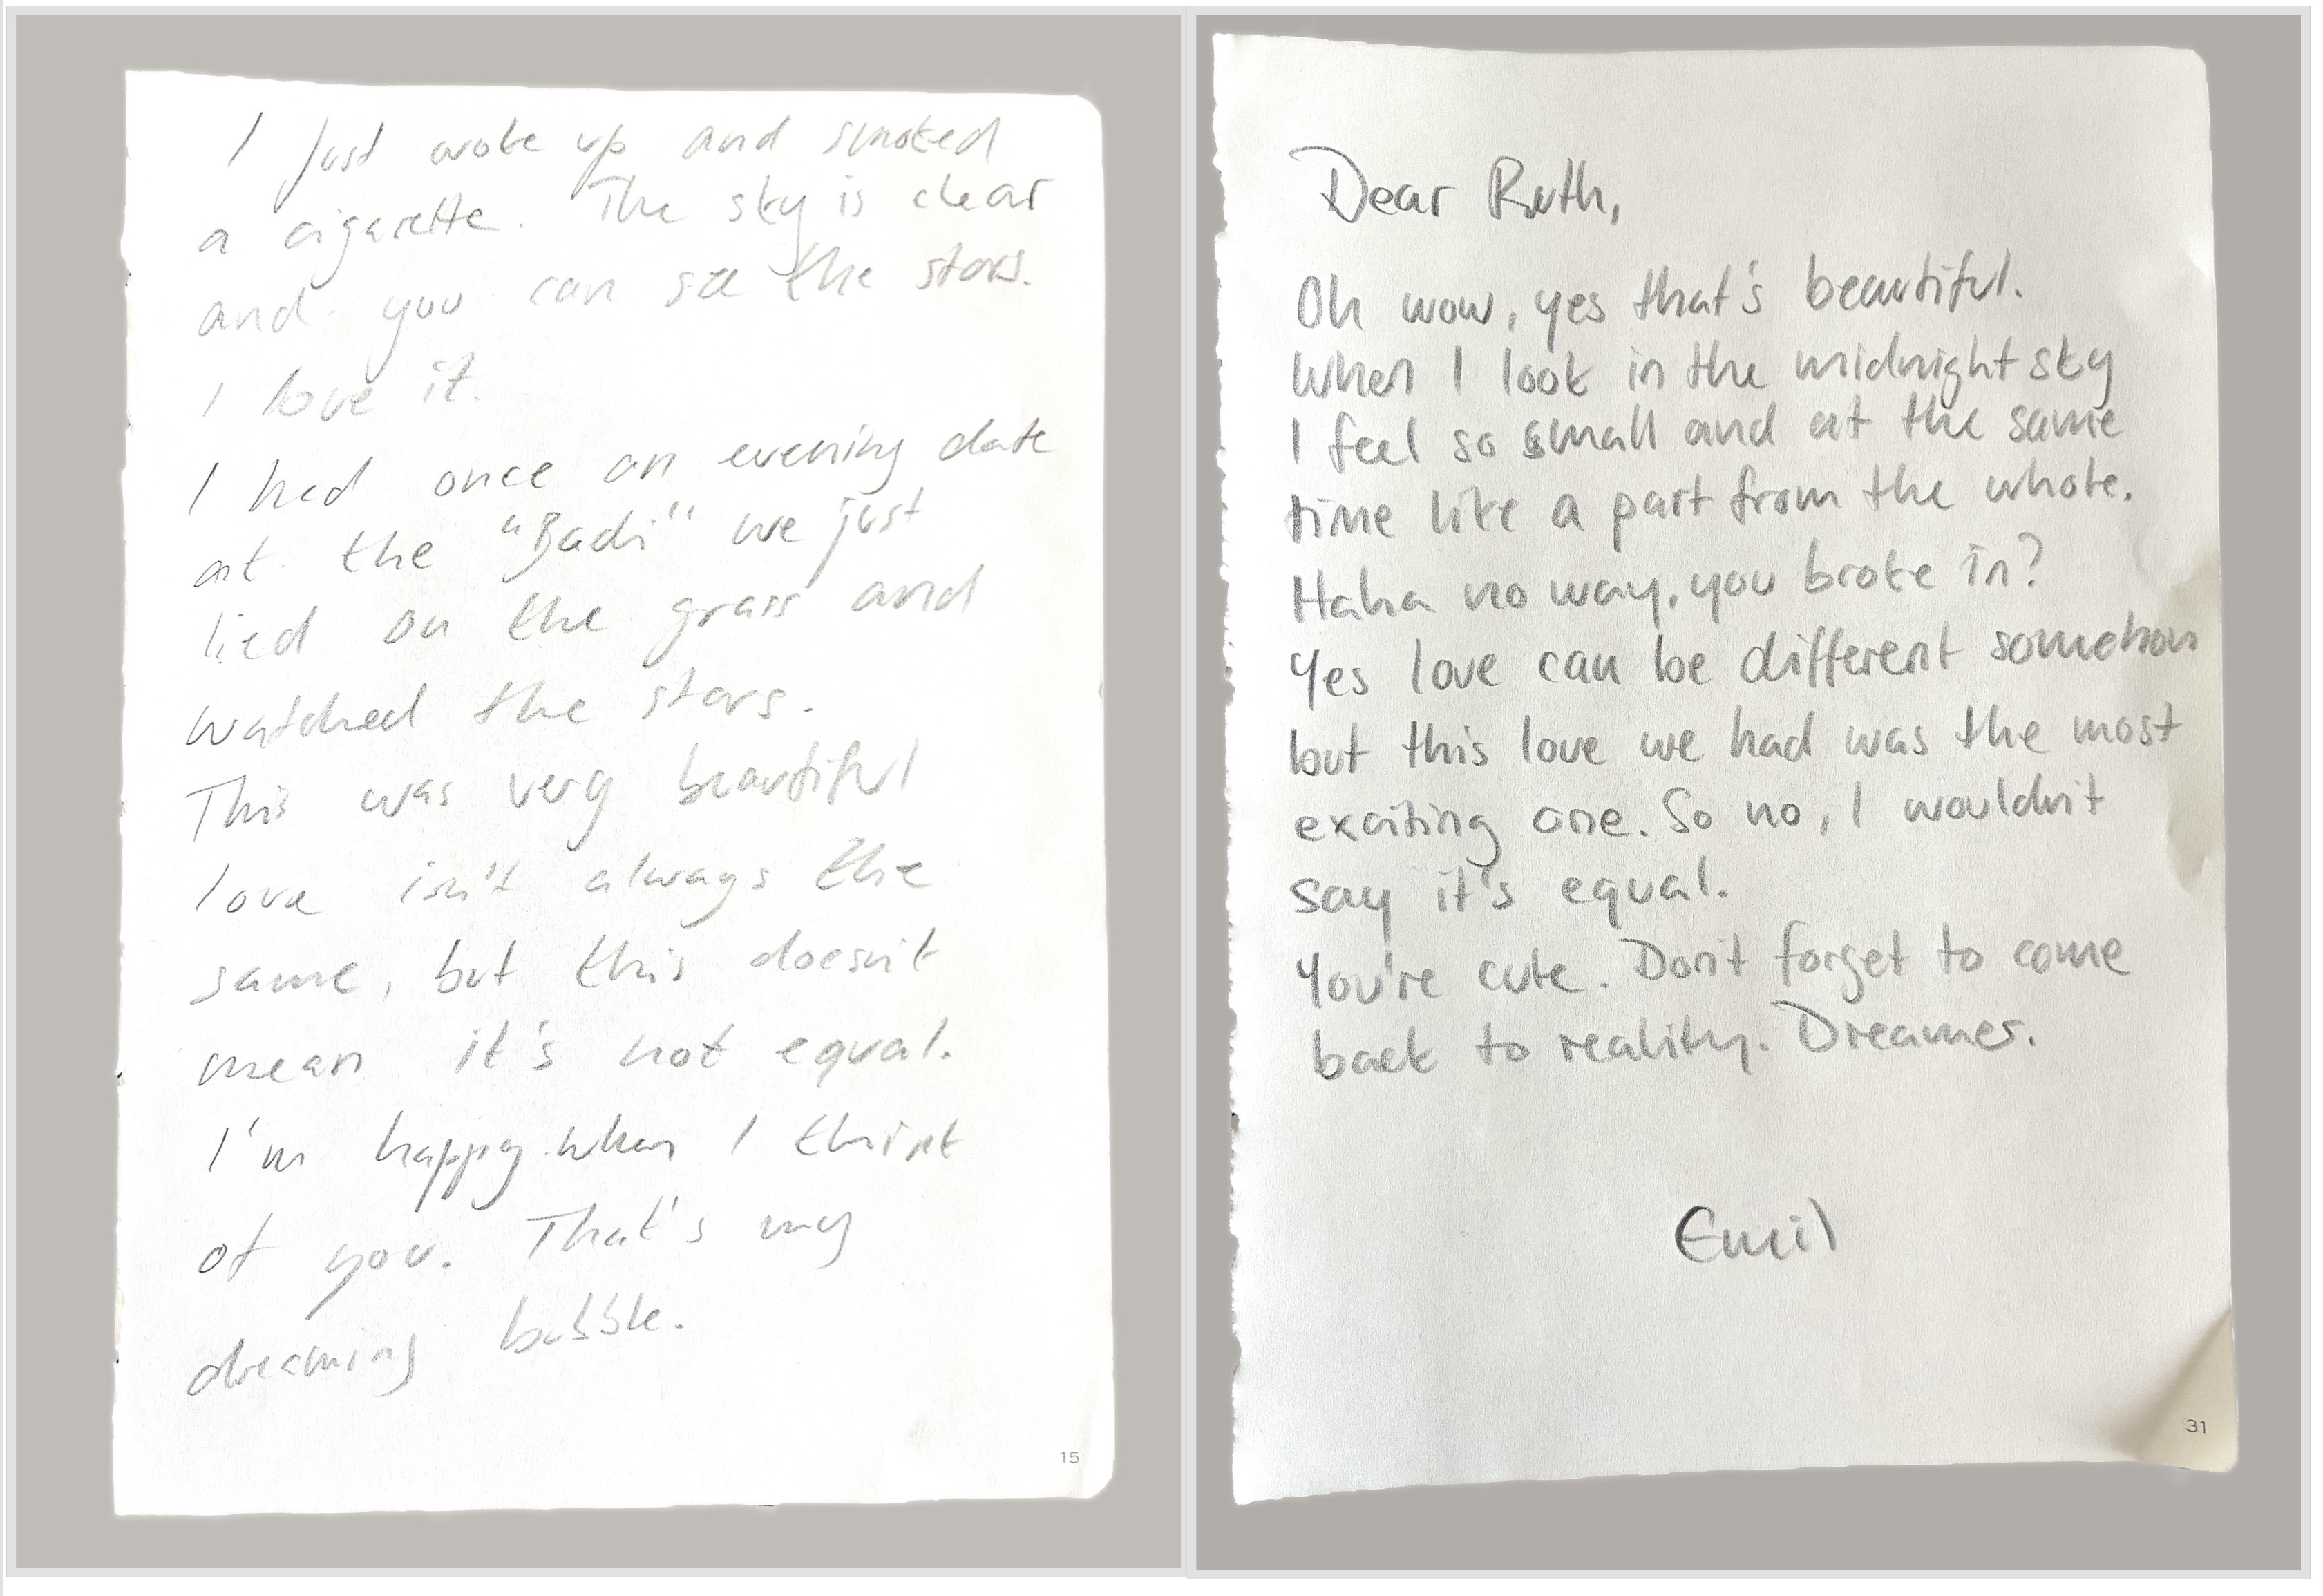 I just woke up and smoked
a cigarette. The sky is clear
and you can see the stars.
I love it.
I had once an evening date
at the "Badi" we just
lied on the grass and
watched the stars.
This was very beautiful
love isn't always the
same, but this doesn't
mean it's not equal.
I'm happy when I think
of you. That's my
dreaming bubble.
15
Dear Ruth,
Oh wow, yes that's beautiful.
When I look in the midnight sky
I feel so small and at the same
time like a part from the whole.
Haha no way, you broke in?
Yes love can be different somehow
but this love we had was the most
exciting one. So no, I wouldn't
say it's equal.
You're cute. Don't forget to come
back to reality. Dreamer.
Emil
31